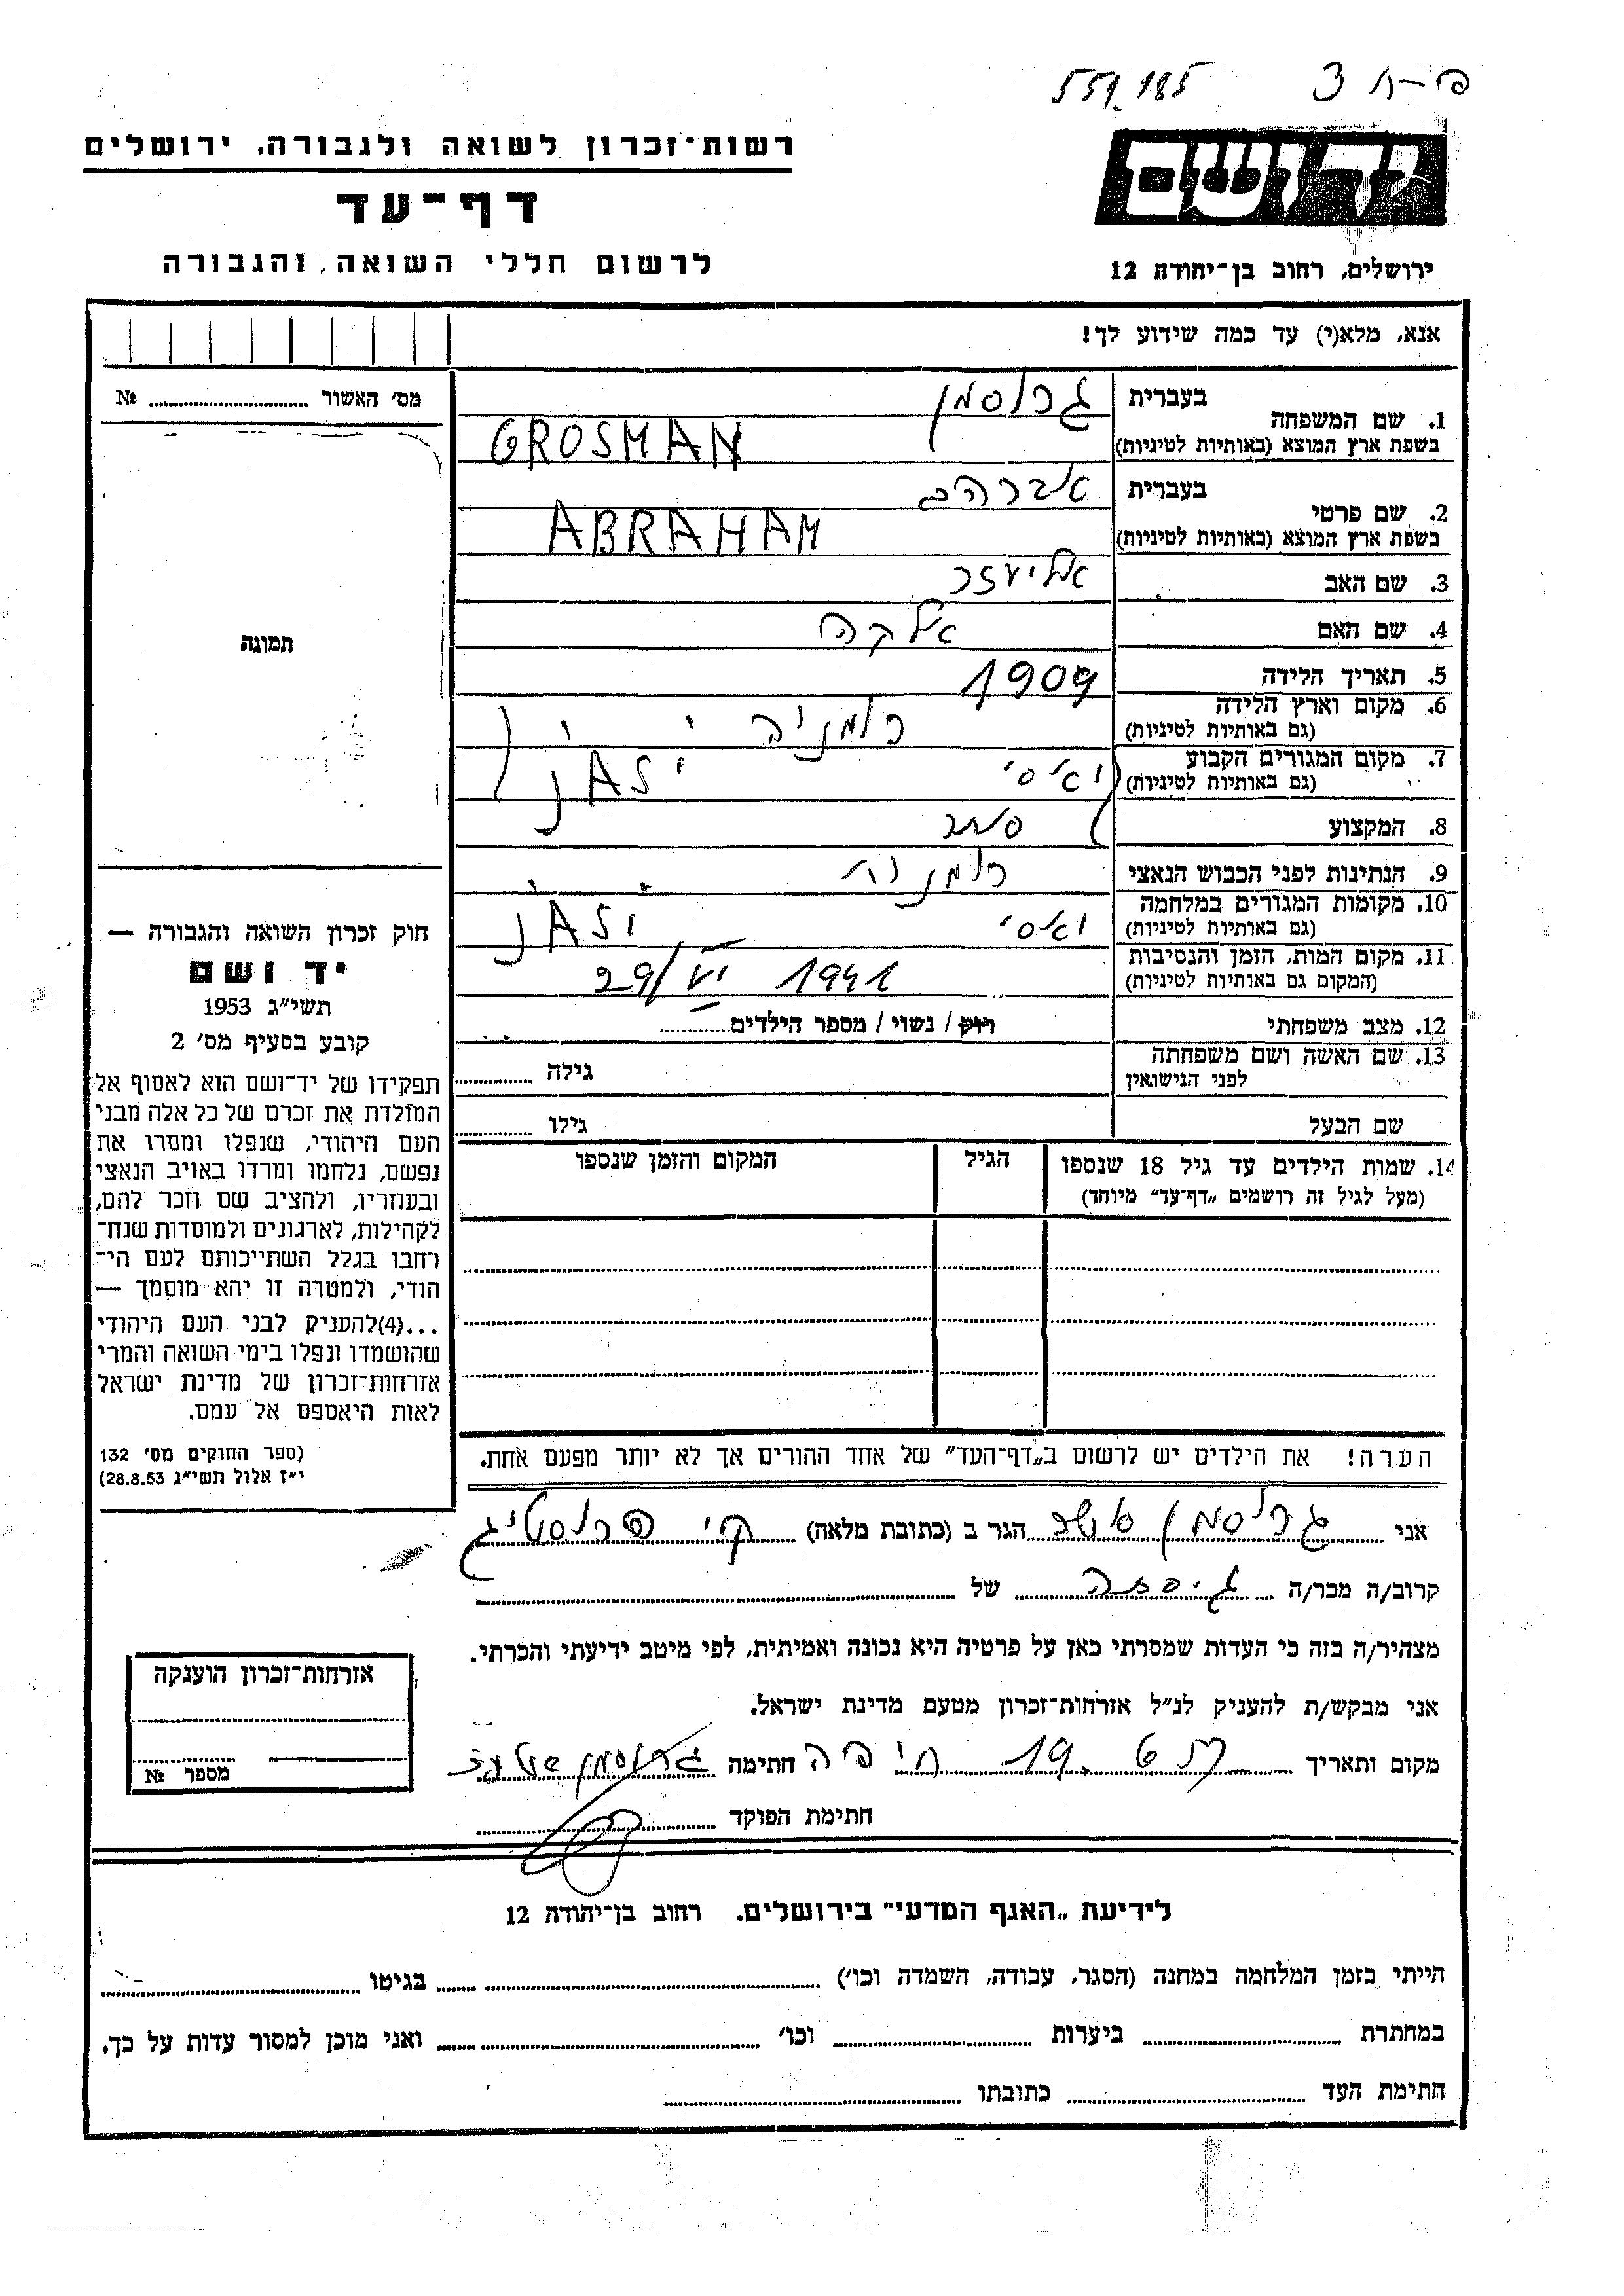 פ-ח 3 551,185
יד ושם
ירושלים, רחוב בן-יהודה 12
רשות-זכרון לשואה ולגבורה, ירושלים
דף-עד
לרשום חללי השואה והגבורה
אנא, מלא(י) עד כמה שידוע לך!
1. שם המשפחה בעברית גרוסמן
בשפת ארץ המוצא (באותיות לטיניות) GROSMAN
2. שם פרטי בעברית אברהם
בשפת ארץ המוצא (באותיות לטיניות) ABRAHAM
3. שם האב אליעזר
4. שם האם
5. תאריך הלידה 1909
6. מקום וארץ הלידה רומניה
(גם באותיות לטיניות)
7. מקום המגורים הקבוע יאסי JASI
(גם באותיות לטיניות)
8. המקצוע סוחר
9. הנתינות לפני הכבוש הנאצי רומניה
10. מקומות המגורים במלחמה יאסי JASI
(גם באותיות לטיניות)
11. מקום המות, הזמן והנסיבות 29/VI 1941
(המקום גם באותיות לטיניות)
12. מצב משפחתי רוק / נשוי / מספר הילדים
13. שם האשה ושם משפחתה גילה
לפני הנישואין
שם הבעל גילו
14. שמות הילדים עד גיל 18 שנספו הגיל המקום והזמן שנספו
(מעל לגיל זה רושמים „דף-עד" מיוחד)
הערה! את הילדים יש לרשום ב„דף-העד" של אחד ההורים אך לא יותר מפעם אחת.
מס׳ האשור №
תמונה
חוק זכרון השואה והגבורה —
יד ושם
תשי״ג 1953
קובע בסעיף מס׳ 2
תפקידו של יד-ושם הוא לאסוף אל
המולדת את זכרם של כל אלה מבני
העם היהודי, שנפלו ומסרו את
נפשם, נלחמו ומרדו באויב הנאצי
ובעוזריו, ולהציב שם וזכר להם,
לקהילות, לארגונים ולמוסדות שנח-
רחבו בגלל השתייכותם לעם הי-
הודי, ולמטרה זו יהא מוסמך —
...(4)להעניק לבני העם היהודי
שהושמדו ונפלו בימי השואה והמרי
אזרחות-זכרון של מדינת ישראל
לאות היאספם אל עמם.
(ספר החוקים מס׳ 132
י״ז אלול תשי״ג 28.8.53)
אני גרוסמן הגר ב (כתובת מלאה) ק׳
קרוב/ה מכר/ה גיסה של
מצהיר/ה בזה כי העדות שמסרתי כאן על פרטיה היא נכונה ואמיתית, לפי מיטב ידיעתי והכרתי.
אני מבקש/ת להעניק לנ״ל אזרחות-זכרון מטעם מדינת ישראל.
מקום ותאריך 19. חיפה חתימה גרוסמן
חתימת הפוקד
אזרחות-זכרון הוענקה
מספר №
לידיעת „האגף המדעי" בירושלים. רחוב בן-יהודה 12
הייתי בזמן המלחמה במחנה (הסגר, עבודה, השמדה וכו׳) בגיטו
במחתרת ביערות וכו׳ ואני מוכן למסור עדות על כך.
חתימת העד כתובתו